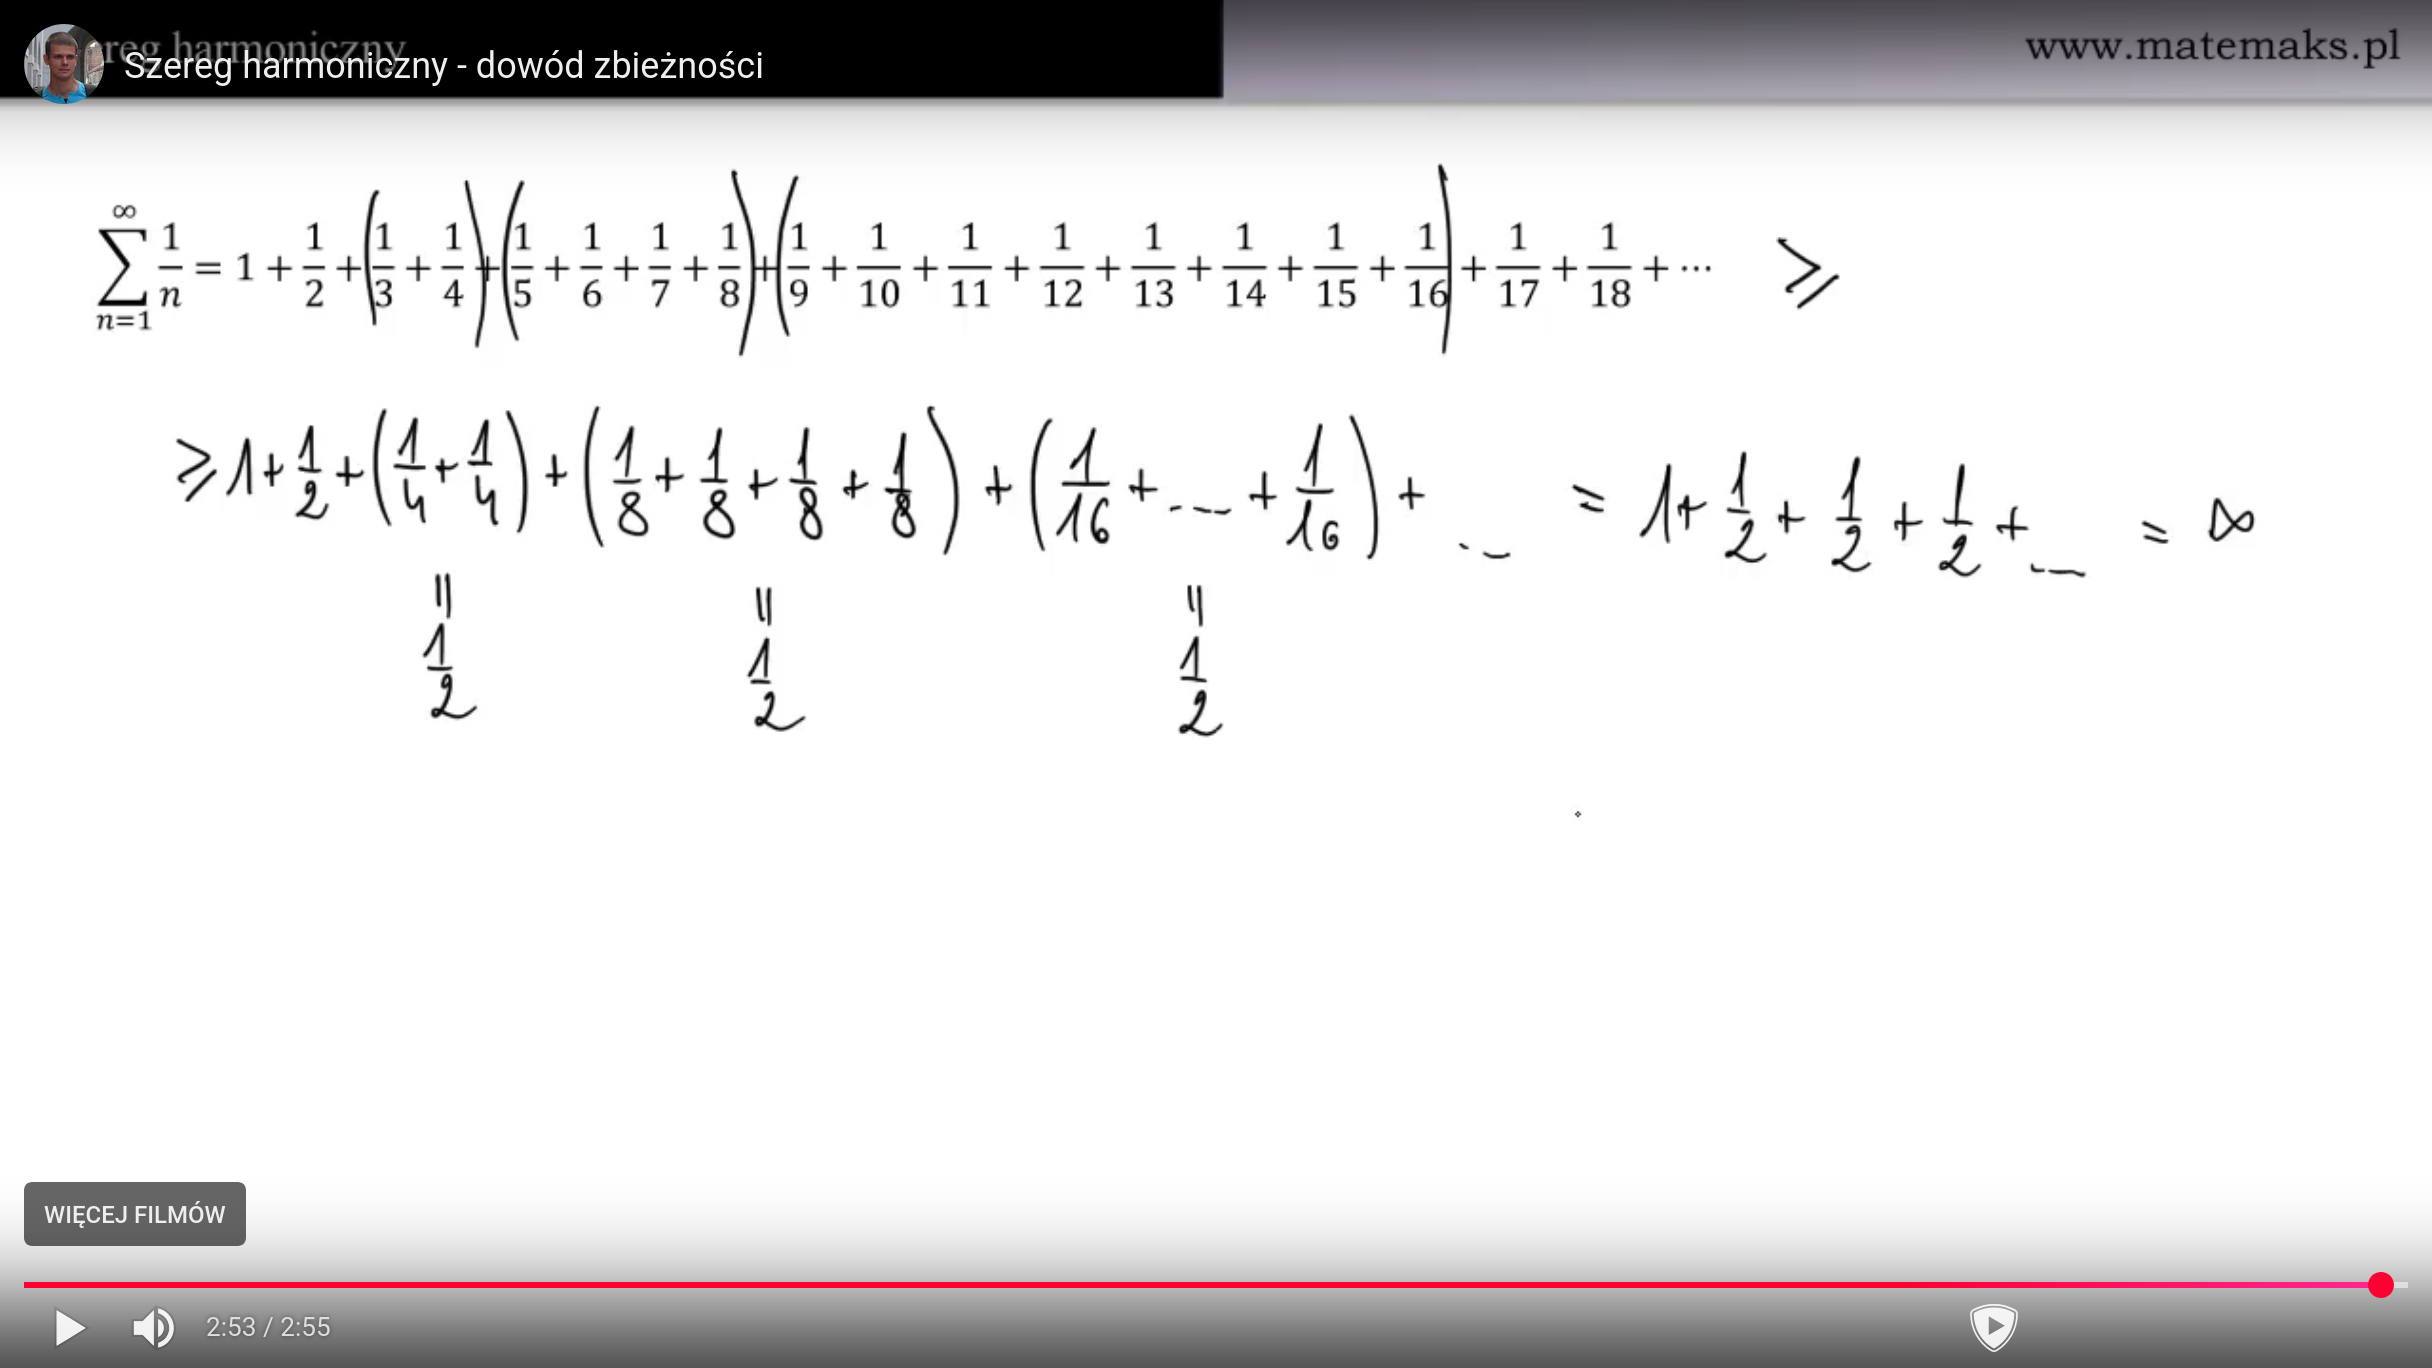 Szereg harmoniczny - dowód zbieżności
www.matemaks.pl
∑_{n=1}^{∞} 1/n = 1 + 1/2 + (1/3 + 1/4) + (1/5 + 1/6 + 1/7 + 1/8) + (1/9 + 1/10 + 1/11 + 1/12 + 1/13 + 1/14 + 1/15 + 1/16) + 1/17 + 1/18 + ⋯ ⩾
⩾ 1 + 1/2 + (1/4 + 1/4) + (1/8 + 1/8 + 1/8 + 1/8) + (1/16 + ... + 1/16) + ... = 1 + 1/2 + 1/2 + 1/2 + ... = ∞
= 1/2 = 1/2 = 1/2
WIĘCEJ FILMÓW
2:53 / 2:55